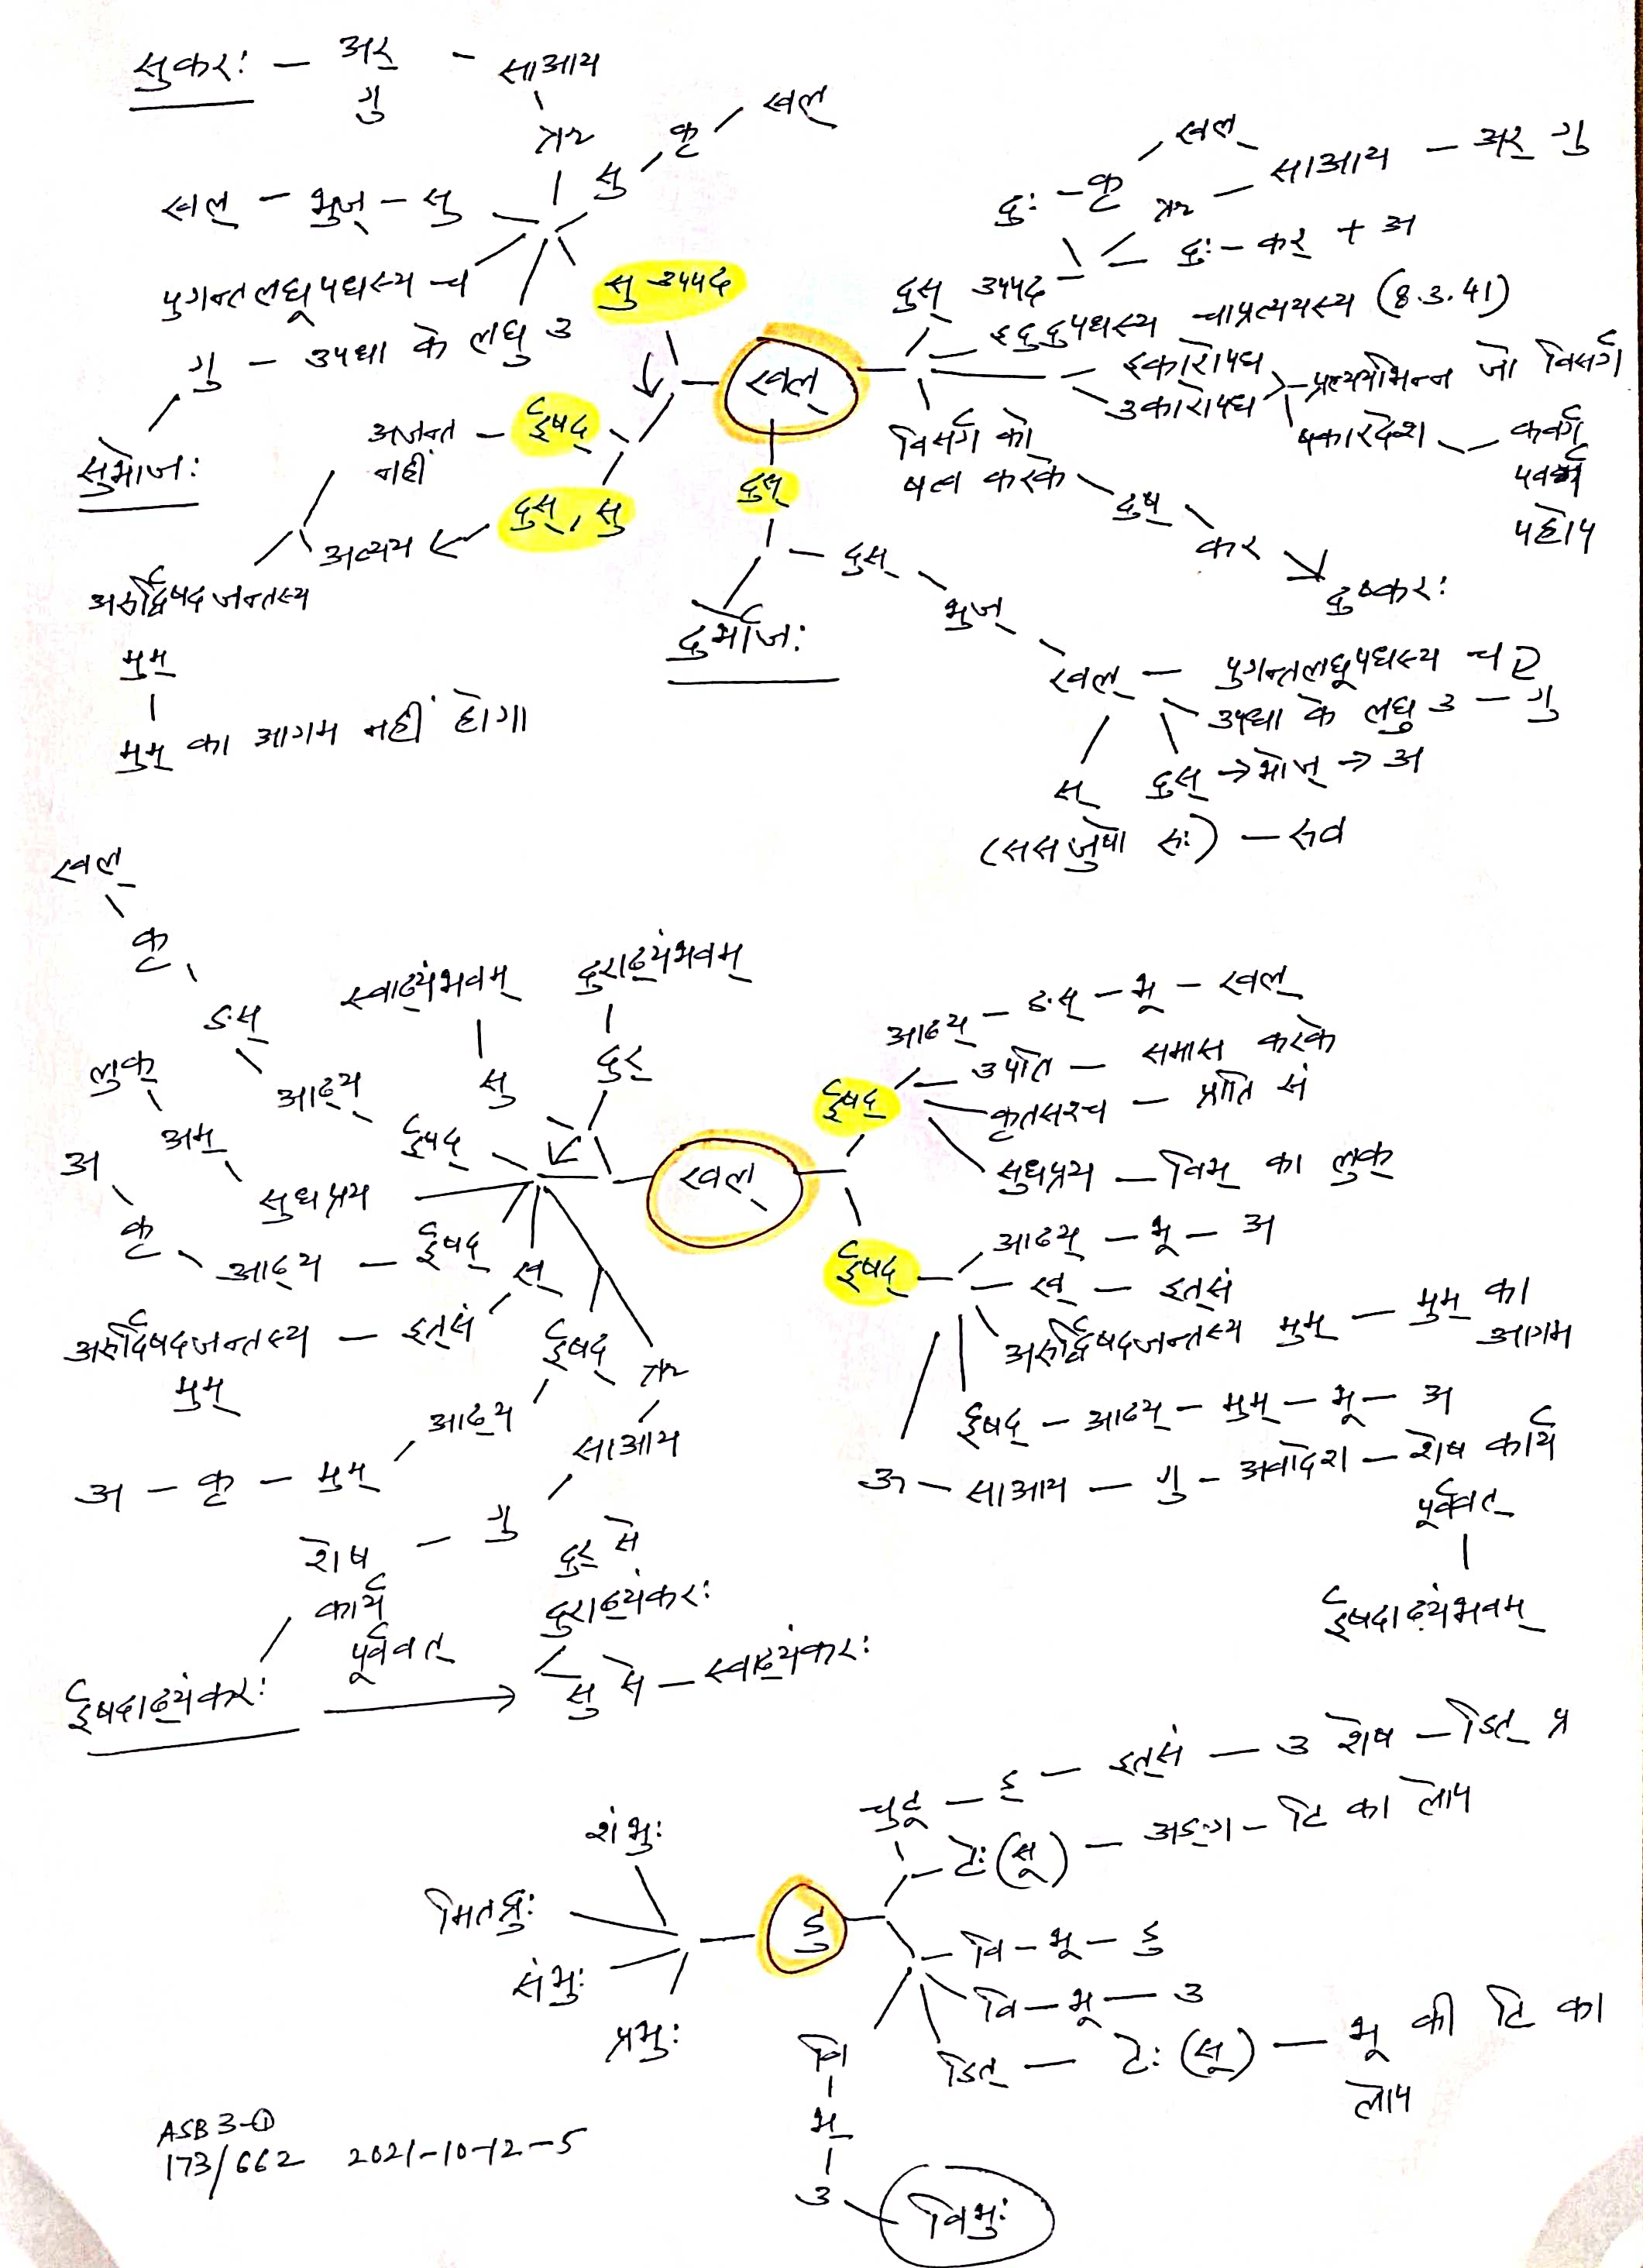 सुकरः — अर् — साआय
गु
गु सु कृ खल्
खल् — भुज् — सु
पुगन्तलघूपधस्य च
गु — उपधा के लघु उ
सुभोजः
सु उपपद
खल्
ईषद् — अजन्त नहीं
दुस्, सु
अव्यय
अरुर्द्विषदजन्तस्य
मुम्
मुम् का आगम नहीं होगा
दुः — कृ खल्
साआय — अर् गु
दुः — कर् + अ
दुस् उपपद
इदुदुपधस्य चाप्रत्ययस्य (8.3.41)
इकारोपध
उकारोपध
प्रत्ययभिन्न जो विसर्ग
षकारदेश — कवर्ग
पवर्ग
पहोप
विसर्ग को
षत्व करके
दुष्
कर
दुष्करः
दुस्
दुस्
भुज्
दुर्भोजः
खल् — पुगन्तलघूपधस्य च
उपधा के लघु उ — गु
स् दुस् → भोज् → अ
(ससजुषो रुः) — रुत्व
खल्
कृ
ङस्
आढ्य
ईषद्
स्वाढ्यंभवम्
दुराढ्यंभवम्
सु
दुर्
लुक्
अम्
सुधप्रय
अ
कृ
आढ्य — ईषद्
ख्
अरुर्द्विषदजन्तस्य — इत्सं
मुम्
ईषद्
आढ्य
अ — कृ — मुम्
साआय
शेष — गु
कार्य
पूर्ववत्
ईषदाढ्यंकरः
दुर् से
दुराढ्यंकरः
सु से — स्वाढ्यंकरः
खल्
ईषद्
आढ्य — ङस् — भू — खल्
उपोत — समास करके
कृतसश्च — प्राति सं
सुधप्रय — विभ् का लुक्
ईषद्
आढ्य — भू — अ
ख् — इत्सं
अरुर्द्विषदजन्तस्य मुम् — मुम् का
आगम
ईषद् — आढ्य — मुम् — भू — अ
अ — साआय — गु — अवादेश — शेष कार्य
पूर्ववत्
ईषदाढ्यंभवम्
शंभुः
मितद्रुः
संभुः
प्रभुः
डु
चुटू — ड् — इत्सं — उ शेष — डित् प्र
टेः (सू) — अङ्ग — टि का लोप
वि — भू — डु
वि — भू — उ
डित् — टेः (सू) — भू की टि का
लोप
वि
भ्
उ
विभुः
ASB 3-①
173/662 2021-10-12-5